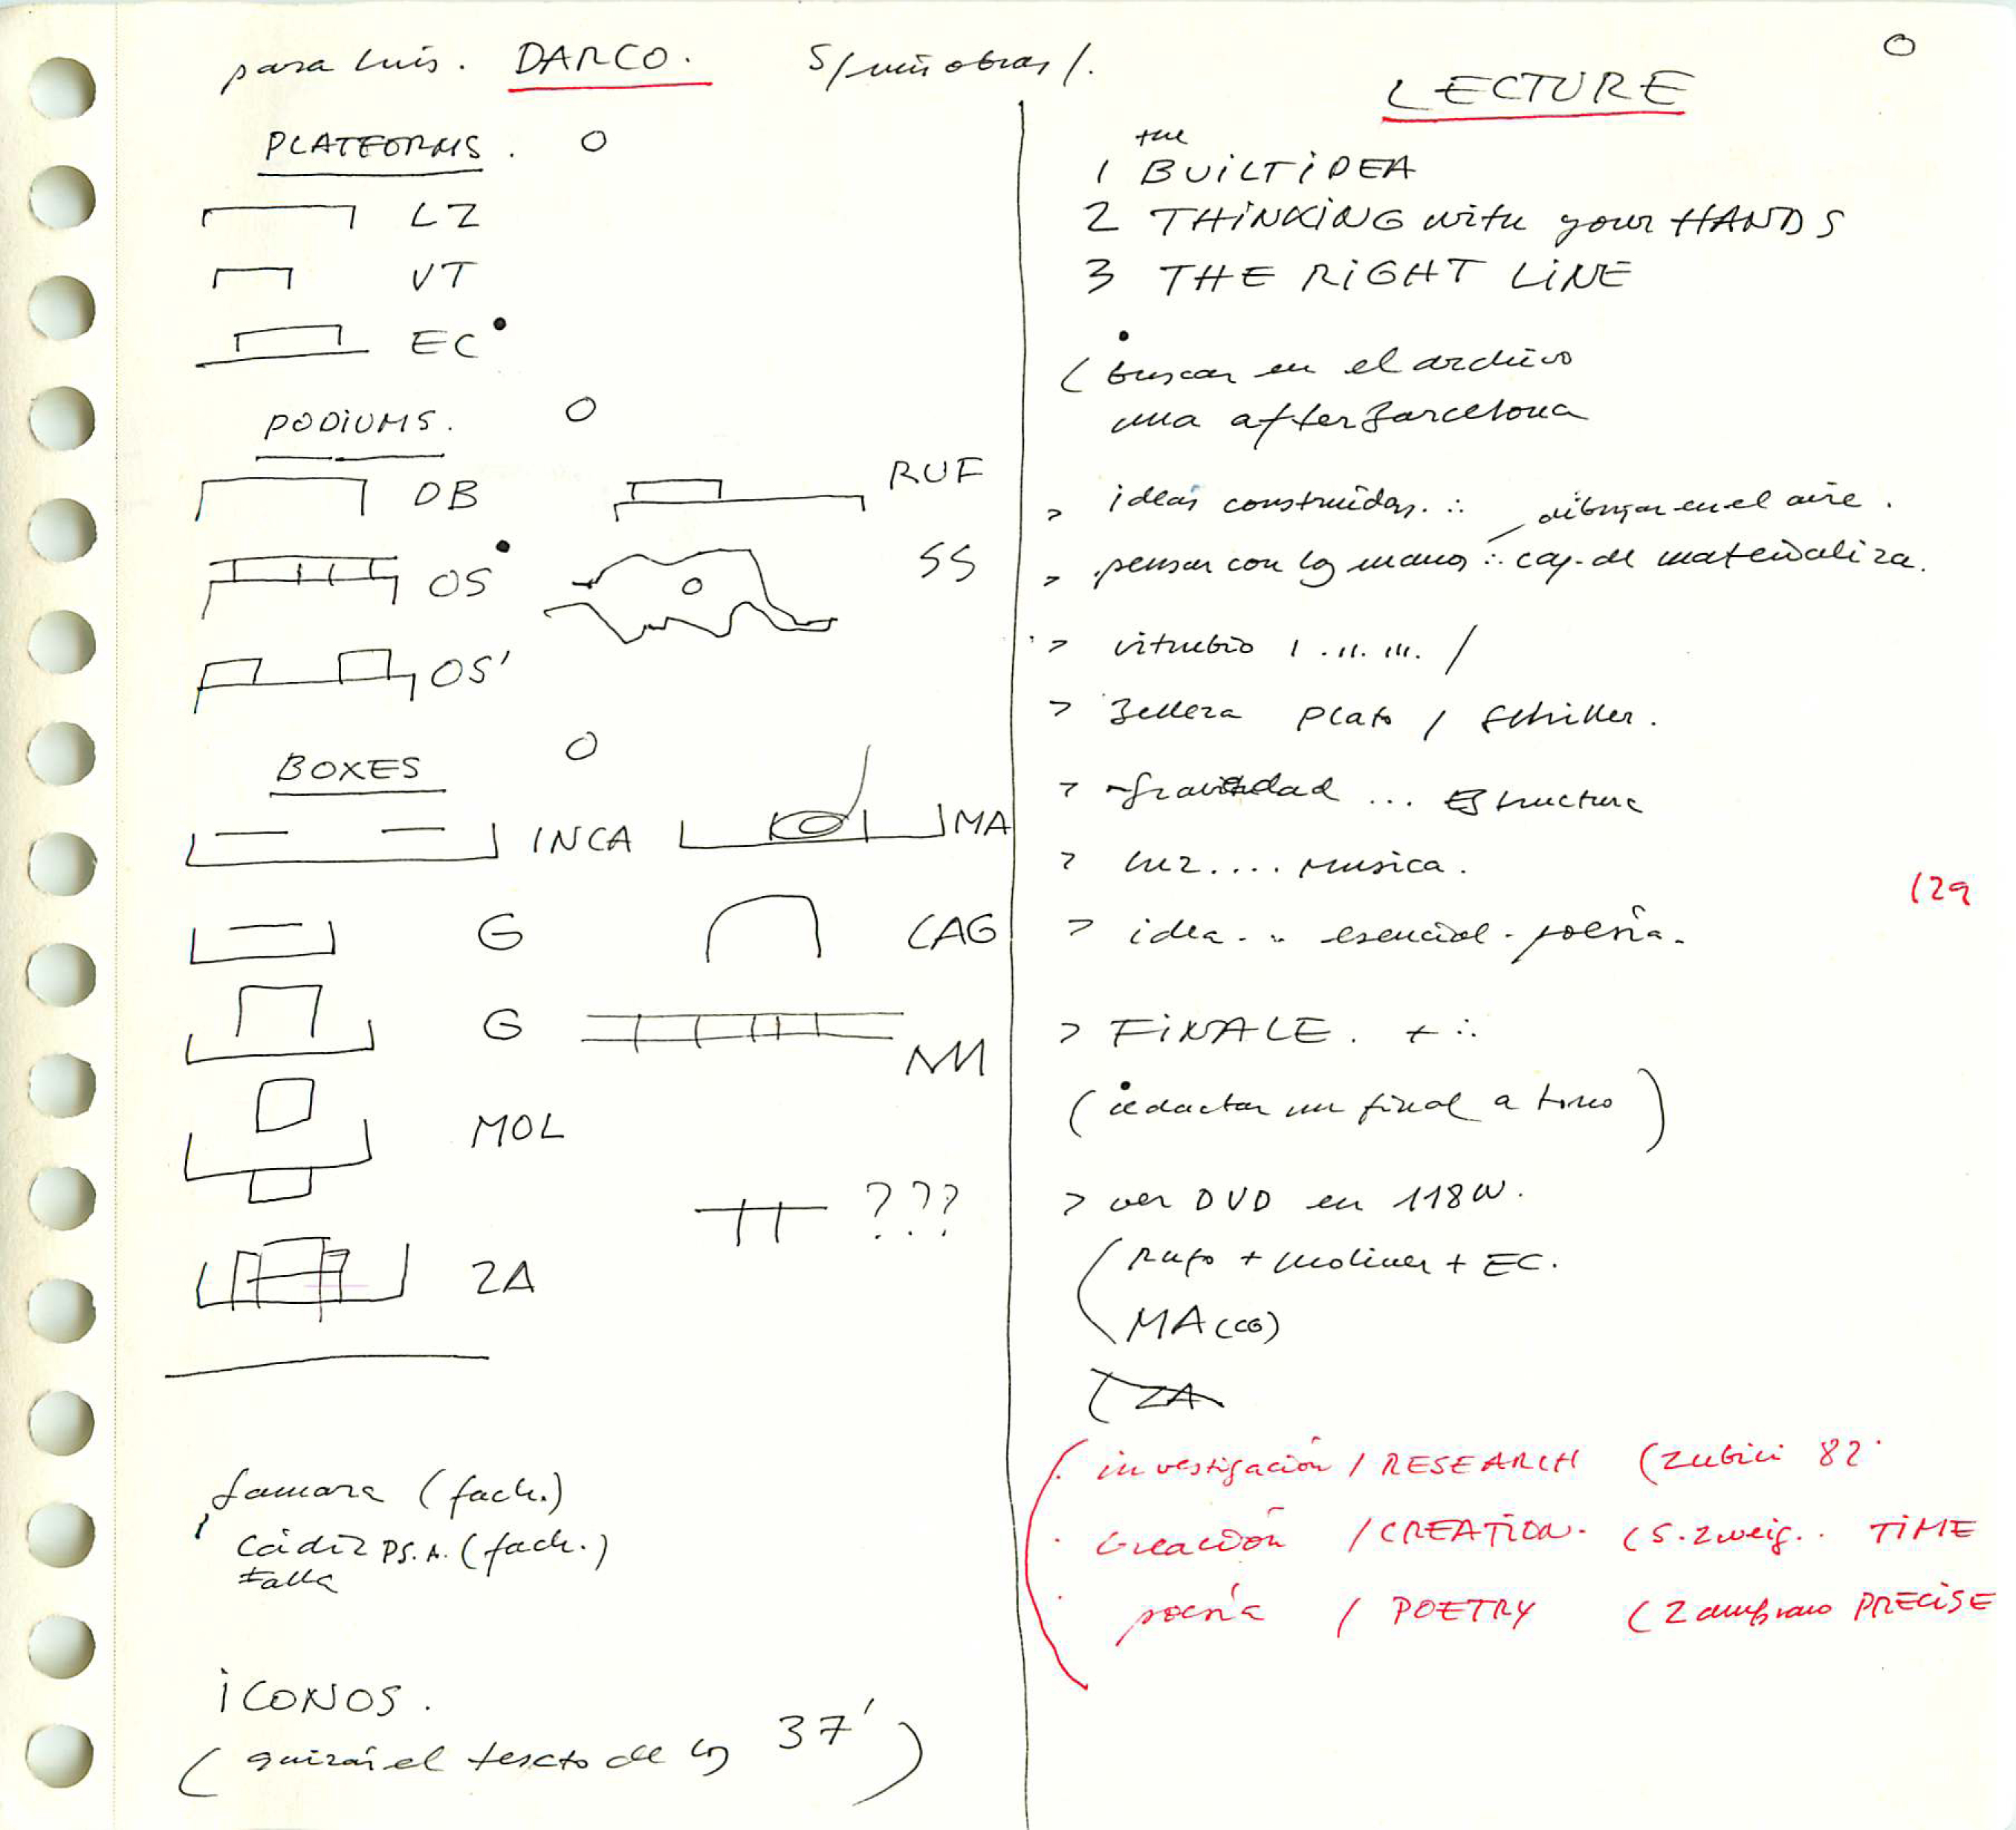 para Luis. DARCO. S/mis obras/.
PLATFORMS. O
LZ
VT
EC
PODIUMS. O
DB
RUF
OS
SS
OS'
BOXES O
INCA
MA
G
CAG
G
NM
MOL
???
ZA
Gamarra (fach.)
Cádiz P.S.A. (fach.)
Falla
iCONOS.
(quizás el texto de los 37')
O
LECTURE
the
1 BUiLT iDEA
2 THiNKiNG with your HANDS
3 THE RiGHT LiNE
(buscar en el archivo
una after Barcelona
> ideas construidas. ∴ dibujar en el aire.
> pensar con las manos ∴ cap. de materializa.
> vitrubio I. II. III. /
> Belleza Plato / Schiller.
> gravedad ... Estructura
> luz.... musica.
(29
> idea. .. esencial - poesía.
> FiNALE. + ∴
(redactar un final a tono)
> ver DVD en 118W.
(Rufo + Moliner + EC.
MA (CG)
(ZA
(. investigación / RESEARCH (Zubiri 82.
. Creación / CREATiON. (S. Zweig.. TiME
. poesía / POETRY (Zambrano PRECiSE